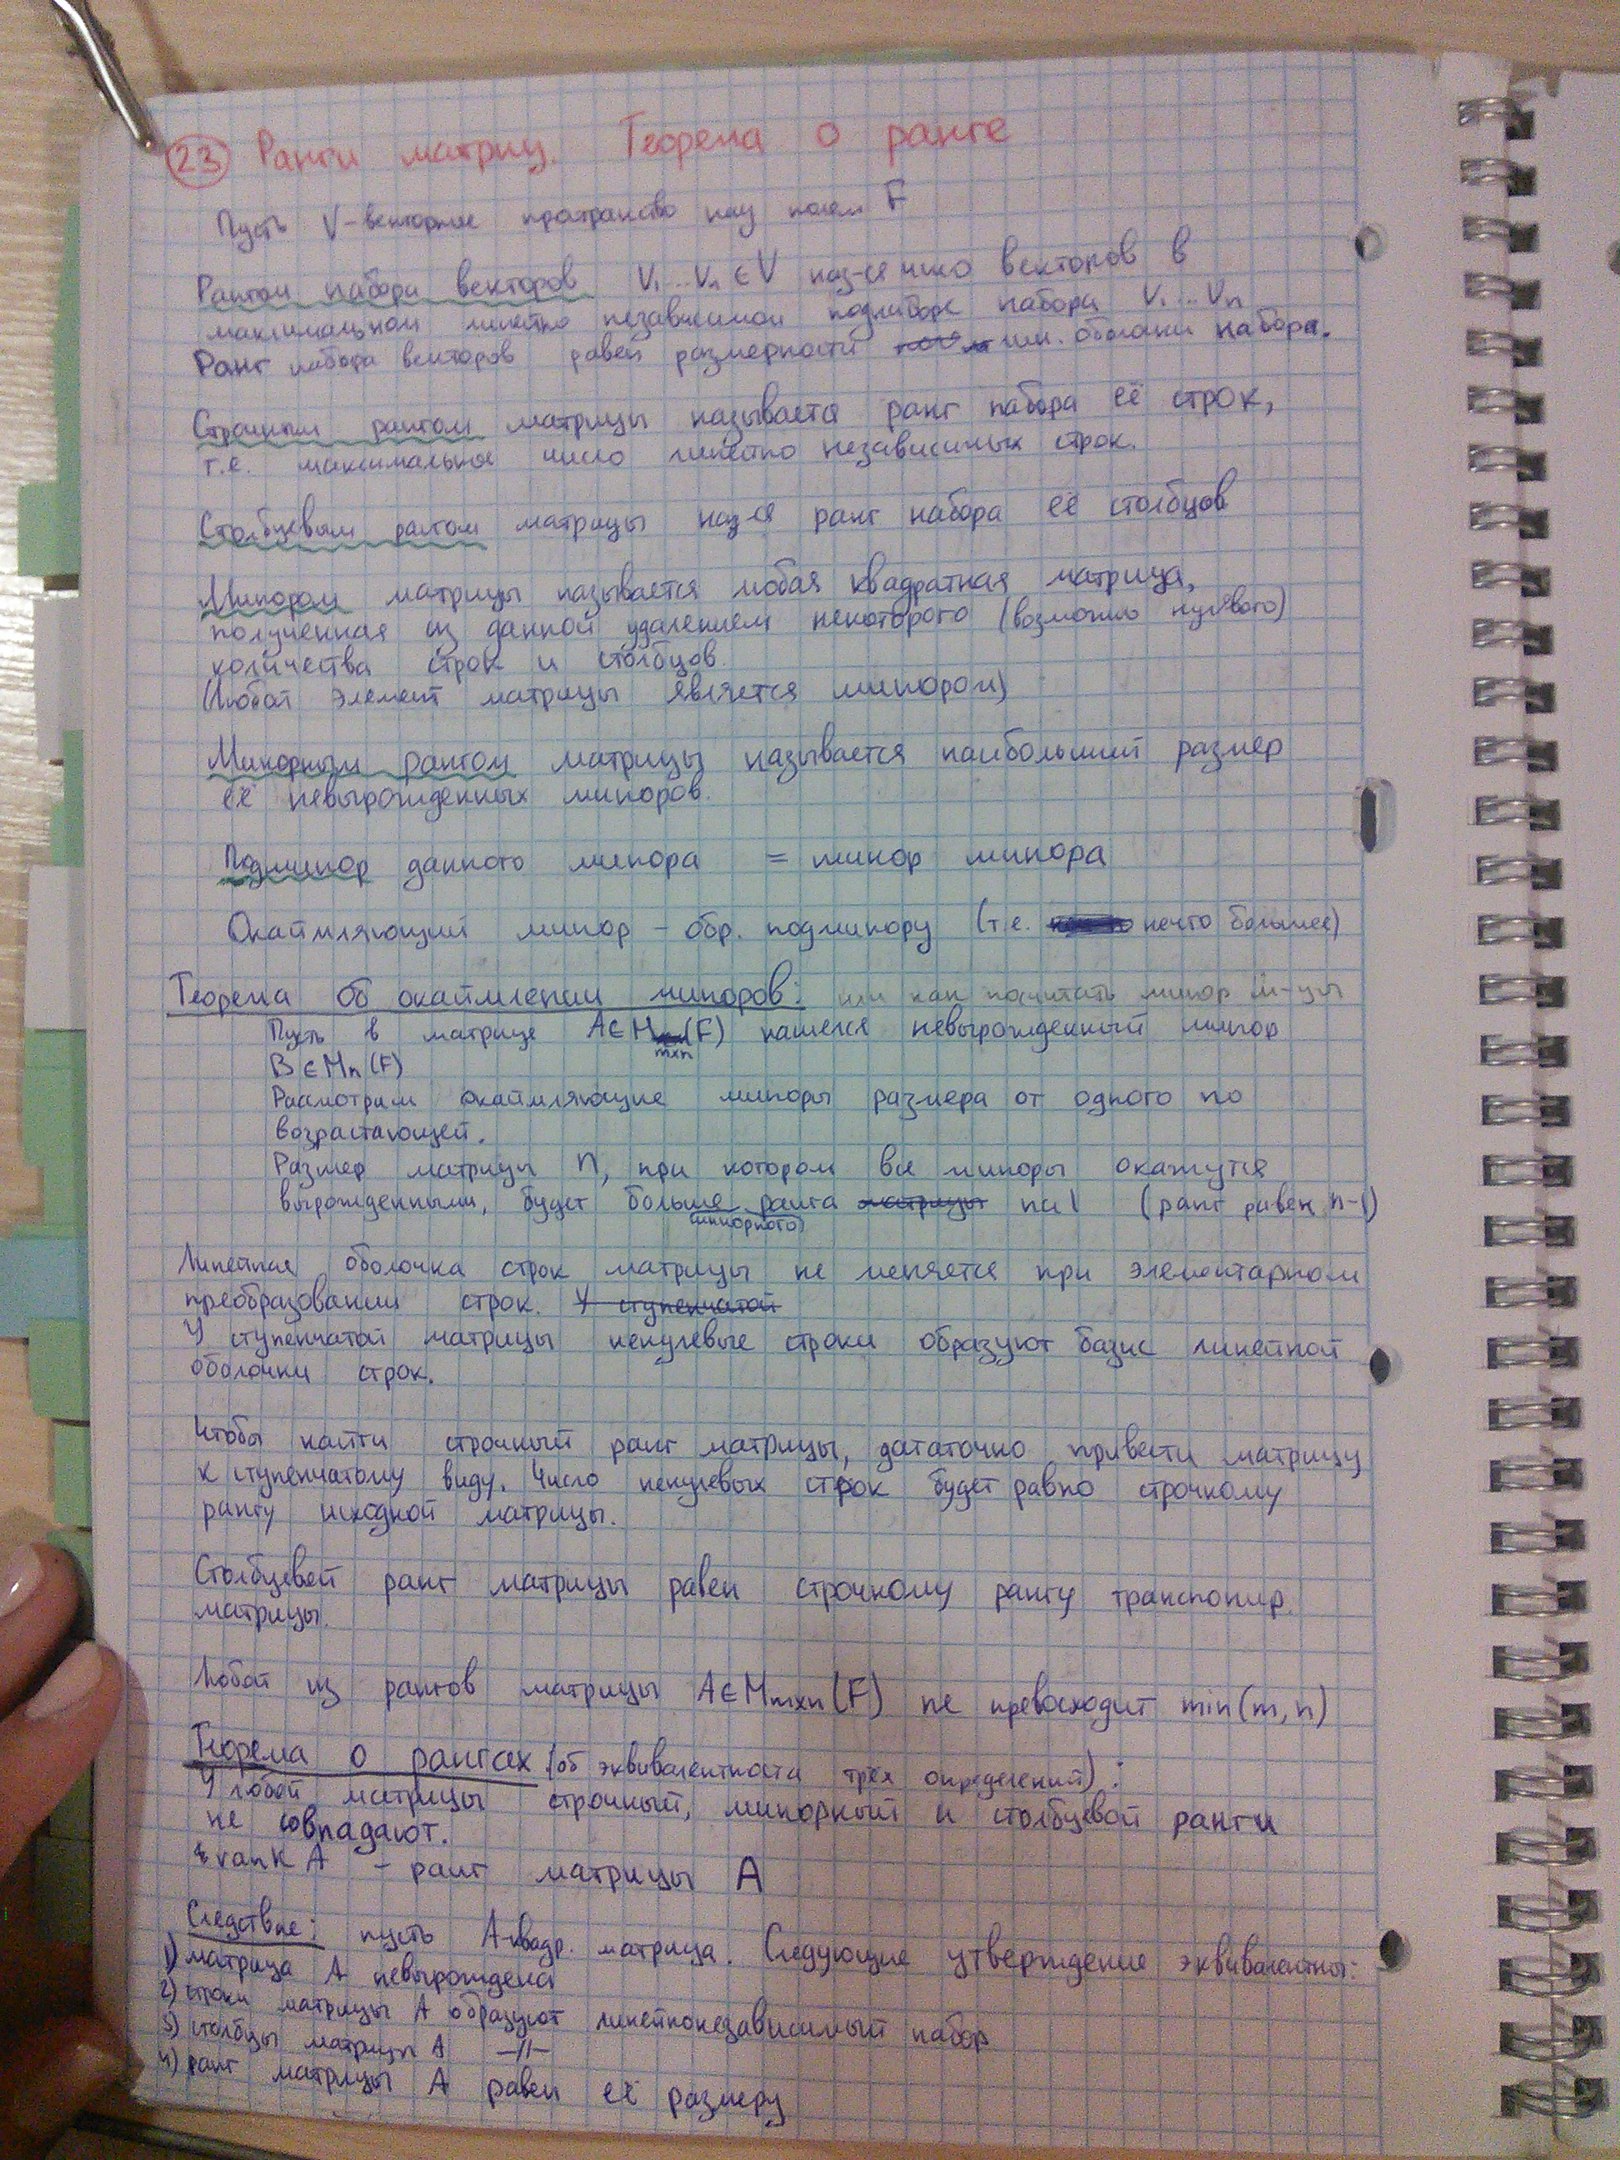 23 Ранги матриц. Теорема о ранге
Пусть V-векторное пространство над полем F
Рангом набора векторов V₁...Vₙ ∈ V наз-ся число векторов в
максимальном линейно независимом поднаборе набора V₁...Vₙ
Ранг набора векторов равен размерности лин. оболочки набора.
Строчным рангом матрицы называется ранг набора её строк,
т.е. максимальное число линейно независимых строк.
Столбцевым рангом матрицы наз-ся ранг набора её столбцов
Минором матрицы называется любая квадратная матрица,
полученная из данной удалением некоторого (возможно нулевого)
количества строк и столбцов.
(Любой элемент матрицы является минором)
Минорным рангом матрицы называется наибольший размер
её невырожденных миноров.
Подминор данного минора = минор минора
Окаймляющий минор - обр. подминору (т.е. нечто большее)
Теорема об окаймлении миноров: или как посчитать минор м-цы
Пусть в матрице A∈M (F) нашелся невырожденный минор
mxn
B∈Mₙ(F)
Рассмотрим окаймляющие миноры размера от одного по
возрастающей.
Размер матрицы n, при котором все миноры окажутся
вырожденными, будет больше ранга матрицы на 1 (ранг равен n-1)
(минорного)
Линейная оболочка строк матрицы не меняется при элементарном
преобразовании строк. У ступенчатой
У ступенчатой матрицы ненулевые строки образуют базис линейной
оболочки строк.
Чтобы найти строчный ранг матрицы, достаточно привести матрицу
к ступенчатому виду. Число ненулевых строк будет равно строчному
рангу исходной матрицы.
Столбцевой ранг матрицы равен строчному рангу транспонир.
матрицы.
Любой из рангов матрицы A∈Mmxn(F) не превосходит min(m,n)
Теорема о рангах (об эквивалентности трёх определений):
У любой матрицы строчный, минорный и столбцевой ранги
не совпадают.
rank A - ранг матрицы A
Следствие: пусть A-квадр. матрица. Следующие утверждение эквивалентны:
1) матрица A невырождена
2) строки матрицы A образуют линейнонезависимый набор
3) столбцы матрицы A —//—
4) ранг матрицы A равен её размеру